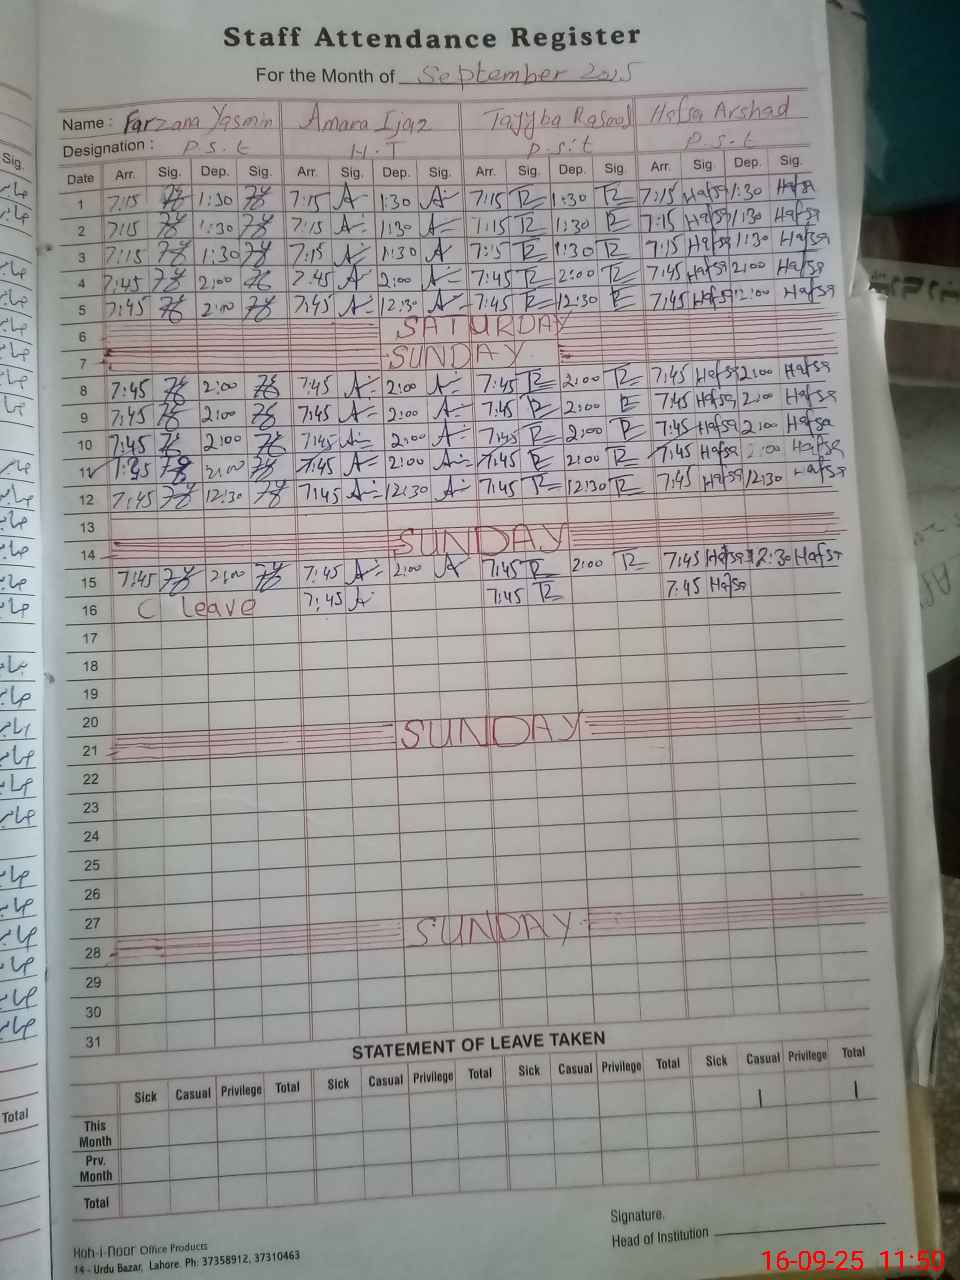 Staff Attendance Register
For the Month of September 2025
Name : Farzana Yasmin Amara Ijaz Tayyba Rasool Hafsa Arshad
Designation : P.S.t H.T P.S.t P.S.t
Date Arr. Sig. Dep. Sig. Arr. Sig. Dep. Sig. Arr. Sig. Dep. Sig. Arr. Sig. Dep. Sig.
1 7:15 1:30 7:15 A 1:30 A 7:15 R 1:30 R 7:15 Hafsa 1:30 Hafsa
2 7:15 1:30 7:15 A 1:30 A 7:15 R 1:30 R 7:15 Hafsa 1:30 Hafsa
3 7:15 1:30 7:15 A 1:30 A 7:15 R 1:30 R 7:15 Hafsa 1:30 Hafsa
4 7:45 2:00 7:45 A 2:00 A 7:45 R 2:00 R 7:45 Hafsa 2:00 Hafsa
5 7:45 2:00 7:45 A 12:30 A 7:45 R 12:30 R 7:45 Hafsa 12:00 Hafsa
6 SATURDAY
7 SUNDAY
8 7:45 2:00 7:45 A 2:00 A 7:45 R 2:00 R 7:45 Hafsa 2:00 Hafsa
9 7:45 2:00 7:45 A 2:00 A 7:45 R 2:00 R 7:45 Hafsa 2:00 Hafsa
10 7:45 2:00 7:45 A 2:00 A 7:45 R 2:00 R 7:45 Hafsa 2:00 Hafsa
11 7:45 2:00 7:45 A 2:00 A 7:45 R 2:00 R 7:45 Hafsa 2:00 Hafsa
12 7:45 12:30 7:45 A 12:30 A 7:45 R 12:30 R 7:45 Hafsa 12:30 Hafsa
13
14 SUNDAY
15 7:45 2:00 7:45 A 2:00 A 7:45 R 2:00 R 7:45 Hafsa 12:30 Hafsa
16 C leave 7:45 A 7:45 R 7:45 Hafsa
17
18
19
20
21 SUNDAY
22
23
24
25
26
27
28 SUNDAY
29
30
31
STATEMENT OF LEAVE TAKEN
Sick Casual Privilege Total Sick Casual Privilege Total Sick Casual Privilege Total Sick Casual Privilege Total
This Month 1 1
Prv. Month
Total
Signature.
Head of Institution
Koh-i-noor Office Products
14 - Urdu Bazar, Lahore. Ph: 37358912, 37310463
16-09-25 11:50
Sig.
Total